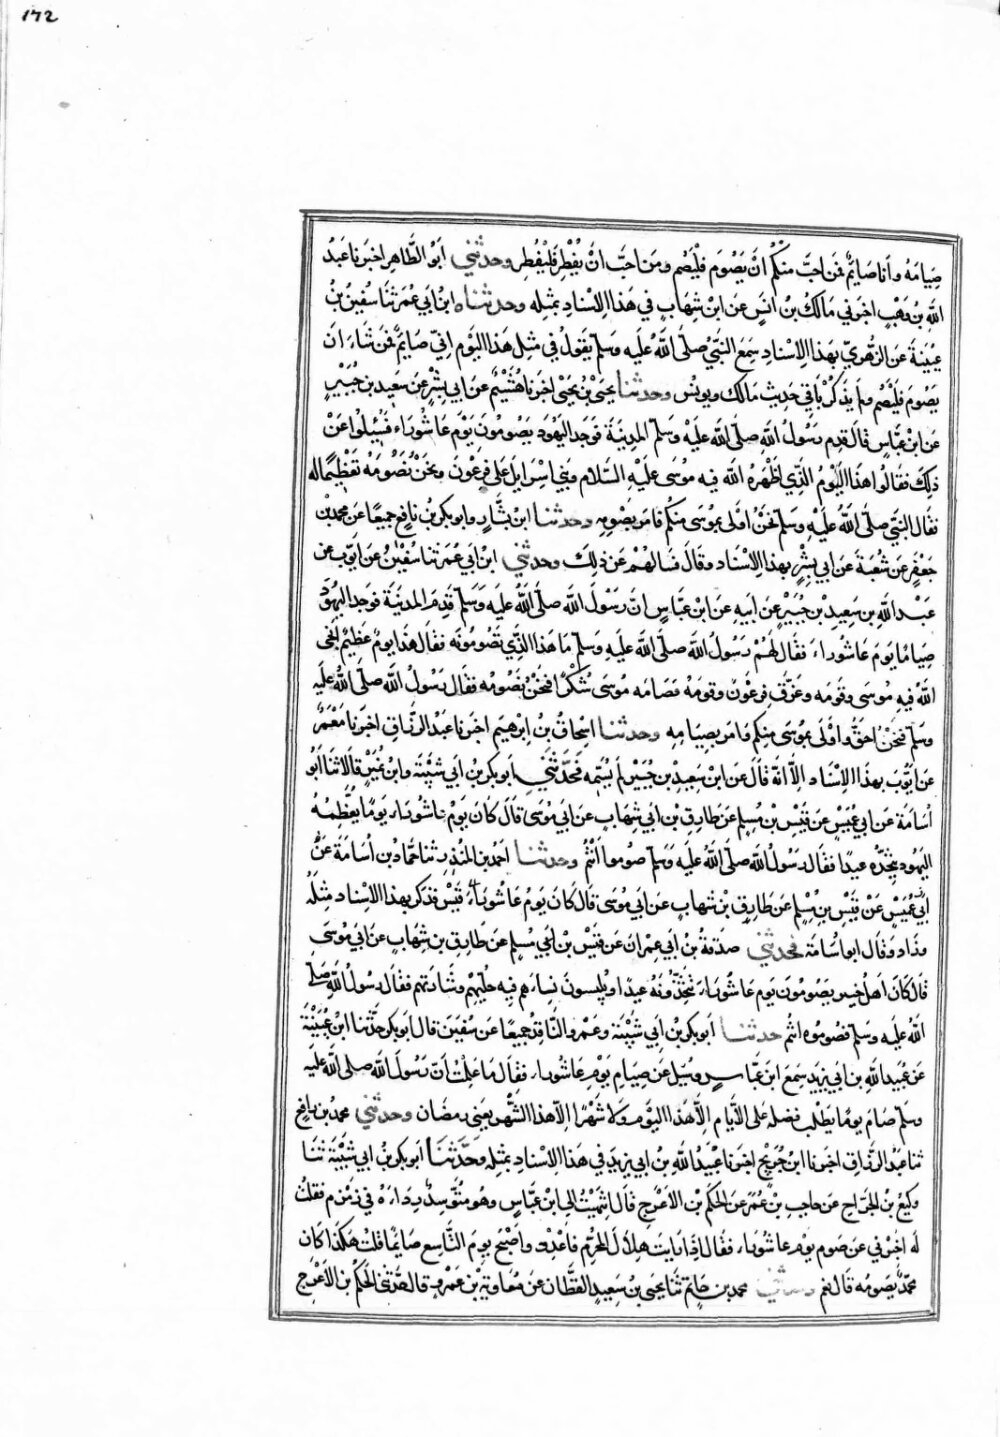 ١٧٢
صِيَامَهُ وأنا صَايمٌ فمَن احبّ منكُم انْ يَصُومَ فليَصُم ومَن احبّ انْ يُفْطِرَ فليُفطِر وحدثني أبو الطَّاهِر اخبرنا عَبْدُ
اللهِ بن وَهْبٍ اخبرني مَالكُ بْنُ انَسٍ عن ابن شِهَابٍ في هَذا الاِسْنادِ بمثله وحدثناه ابن أبي عُمَرَ ثنا سُفينُ بْنُ
عُيَيْنَةَ عن الزُّهْرِيّ بهَذا الاِسْنادِ سمِعَ النبيَّ صلّى اللهُ عليه وسلّم يقولُ في مثلِ هَذا اليَوم انّي صَايمٌ فمَن شاءَ ان
يَصُومَ فليَصُم ولم يَذكُرْ باقي حَديث مَالك ويونس وحدثنا يحيَى بْنُ يحيَى اخبرنا هُشَيْمٌ عن ابي بِشْرٍ عن سَعِيد بن جُبَيْرٍ
عن ابن عَبّاسٍ قال قدِم رَسُولُ اللهِ صلّى الله عليْه وَسَلّمَ المدِينَةَ فوَجَد اليَهُودَ يَصُومُونَ يَوْمَ عَاشُورَاءَ فسُئِلُوا عَنْ
ذلِكَ فقالُوا هذا اليَوْمُ الَّذِي اظْهَرَ اللهُ فيه مُوسَى عليْهِ السَّلام وبَني اسْرَايلَ عَلى فِرْعَوْنَ ونحنُ نَصُومُهُ تعْظِيمًا له
فقال النبيُّ صلّى اللهُ عليْهِ وسَلّمَ نحنُ اوْلى بمُوسَى منكُم فامَر بصَوْمِهِ وحدثنا ابنُ بشَّارٍ وابو بكر بنُ نَافعٍ جميعًا عن محمّدِ بْن
جَعْفَرٍ عَن شُعْبَة عَن ابي بِشْرٍ بهذا الاِسْنادِ وقالَ فسَالهُمْ عَن ذلِكَ وحدثني ابْنُ ابي عُمَرَ ثنا سُفينُ عَن ايّوبَ عن
عَبْدِ اللهِ بن سَعِيدِ بْن جُبَيْرٍ عَن ابيهِ عن ابن عَبّاسٍ انّ رَسُولَ اللهِ صلّى اللهُ عليَه وَسَلّمَ قَدِمَ المدِينَةَ فوجَد اليهُودَ
صِيَامًا يَومَ عَاشُورَاءَ فقَال لهُمْ رَسُولُ اللهِ صلّى اللهُ عليْهِ وسَلّمَ مَا هَذا اليَومُ الّذِي تَصُومُونَه فقال هَذا يومٌ عَظِيمٌ انجَى
اللهُ فيهِ مُوسَى وقَومَه وغرّق فِرعَوْنَ وقومَهُ فصَامَه مُوسَى شُكْرًا فنحنُ نَصُومُه فقال رَسُولُ اللهِ صلّى اللهُ عليْهِ
وسَلّم فنحنُ احَقُّ واوْلى بمُوسَى منكم فامَر بصيَامِهِ وحدثنا اسْحَاقُ بْنُ ابْرهيمَ اخبرنا عَبْدُ الرزّاقِ اخبرنا مَعْمَرٌ
عَن ايّوبَ بهذا الاِسْنادِ الاّ انّه قال عَن ابْنِ سَعِيدِ بْن جُبَيْرٍ لم يُسَمِّهِ فحَدّثني أبو بكر بنُ أبي شيْبَةَ وابنُ نُمَيْرٍ قالا ثنا أبُو
أسَامَةَ عَن ابي عُمَيْسٍ عن قَيْسِ بْن مُسْلِمٍ عَن طَارِقِ بْن ابي شِهَابٍ عن ابي مُوسَى قال كَان يَوْمُ عاشُورَاءَ يَومًا يُعَظِّمُهُ
اليَهُود يتّخِذُه عِيدًا فقَال رَسُولُ اللهِ صلّى اللهُ عليْهِ وَسَلّمَ صُومُوا انتُم وحدثنا احمد بن المُنْذِرِ ثنا حمّاد بن أسَامَةَ عن
أبي عُمَيْسٍ عَنْ قيْسِ بْن مُسْلِمٍ عَن طَارِقِ بْن شِهَابٍ عن ابي مُوسَى قال كَانَ يَومُ عَاشُورَاءَ قيْس فذكر بهذا الاِسْنادِ مِثلَهُ
وزادَ وقال ابو اُسَامَة فحدثني صَدَقةُ بْن ابي عِمْرَانَ عَن قَيْسِ بْن ابي مُسْلِمٍ عَن طَارِقِ بْنِ شِهَابٍ عن ابي مُوسَى
قال كَانَ اهلُ خيْبَر يَصُومُونَ يَومَ عَاشُورَاءَ يتّخِذُونَهُ عِيدًا ويُلبِسُونَ نِسَاءَهم فيهِ حُلِيّهُم وشَارَتهم فقَال رسُولُ اللهِ صلّى
اللهُ عليه وسلّمَ فصُومُوه انتُم حدثنا أبو بكر بْن ابي شيْبَةَ وعَمْرو النّاقدُ جميعًا عن سُفينَ قال أبو بكر حدّثنا ابن عُيَيْنَةَ
عَن عُبيدِ اللهِ بن ابي يزيدَ سَمِعَ ابن عَبّاسٍ وسُئِلَ عَن صِيامِ يَوْمِ عَاشُورَاءَ فقال مَا عَلِمْتُ انّ رَسُولَ اللهِ صلى اللهُ عليه
وسَلّمَ صَامَ يومًا يَطْلبُ فضلَه عَلى الايّام الاّ هَذا اليَوم ولا شَهْرًا الاّ هذا الشّهرَ يَعني رمضَان وحدثني محمّدُ بنُ رافعٍ
ثنا عبدُ الرَزّاقِ اخبرنا ابنُ جُرَيْجٍ اخبرنا عُبيْدُ اللهِ بن ابي يزِيدَ في هَذا الاِسْنادِ بمثلِه وحَدّثنَا أبو بكر بنُ ابي شيْبَة ثنا
وكيعُ بن الجرّاح عن حاجِبِ بْن عُمَر عَن الحكم بْن الاعْرَج قال انتَهيْتُ الى ابن عَبّاسٍ وهُو مُتَوَسِّدٌ رِدَاءَهُ في زمْزم فقلتُ
له اخبِرْني عَن صَوم يَوْم عاشُورَاء فقال اذَا رَايتَ هِلاَلَ المحرّم فاعدُدْ واَصْبِحْ يومَ التّاسعِ صَايمًا قلتُ هَكذا كَان
محمّدٌ يَصُومُه قَال نعَم وحدثني محمد بن حَاتِمٍ ثنا يحيى بنُ سَعِيدٍ القَطَّان عَن مُعَاويَة بْن عَمْرٍو قال حَدّثني الحكَمُ بنُ الاعْرَج